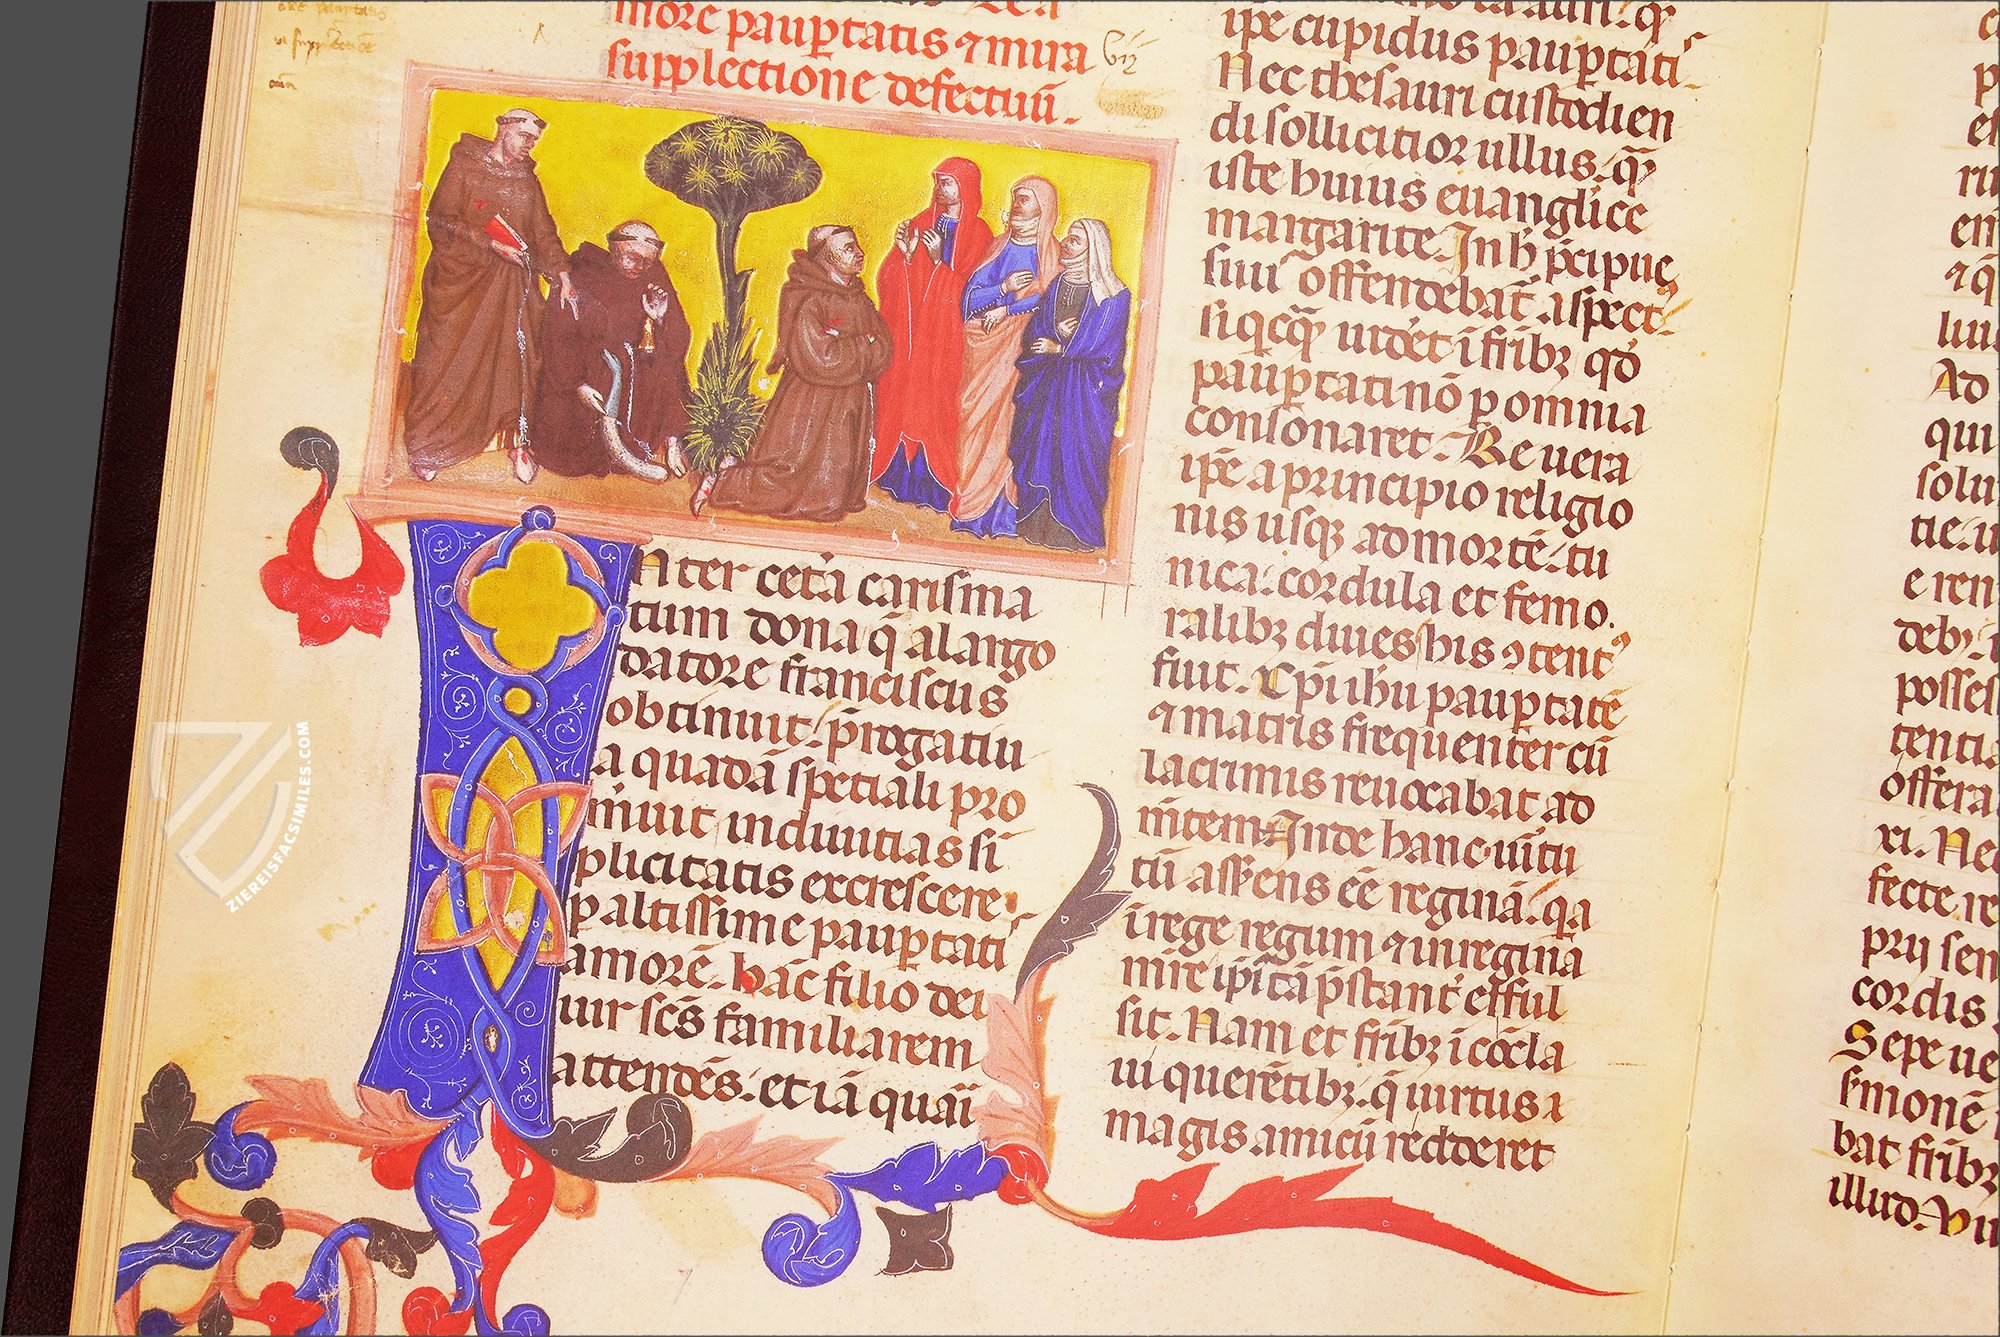 more paup̄tatis ⁊ mira
supplectione defectuū.
Nter cet̄a carisma
tum dona q̄ a largo
datore franciscus
obtinuit. p̄rogatiu
a quadā spetiali pro
m̄uit in diuitias si
plicitatis excrescere
p altissime paup̄tati
amorē. hāc filio dei
uir scs̄ familiarem
attendēs. et iā quaī
ip̄e cupidus paup̄tati
Nec thesauri custodien
di sollicitior ullus. qȝ
iste huius euanglice
margarite. In h̄ p̄cipue
suū offendebāt aspectꝰ
si qcqȝ uidēt ī frībȝ qđ
paup̄tati nō p omnia
consonaret. Re uera
ip̄e a principio religio
nis usqȝ ad mortē. tu
nica. cordula et femo
ralibȝ diues his ꝯtentꝰ
fiut. Xp̄i ih̄u paup̄tatē
⁊ matris frequenter cū
lacrimis reuocabat ad
m̄tem. Inde hanc uītu
tū asserens eē reginā. qa
ī rege regum ⁊ in regina
mr̄e ip̄i tā p̄stant̄ efful
sit. Nam et frībȝ ī cōcla
ui querētibȝ. q̄ uirtus
magis amicū redderet
Ad
qui
solu
tie. u
e ren
deb
posses
tentia
offera
xi. Nec
fecte re
prij sen
cordis
Sepe ue
s̄monē
bat frībȝ
illud. Vu
ZIEREISFACSIMILES.COM